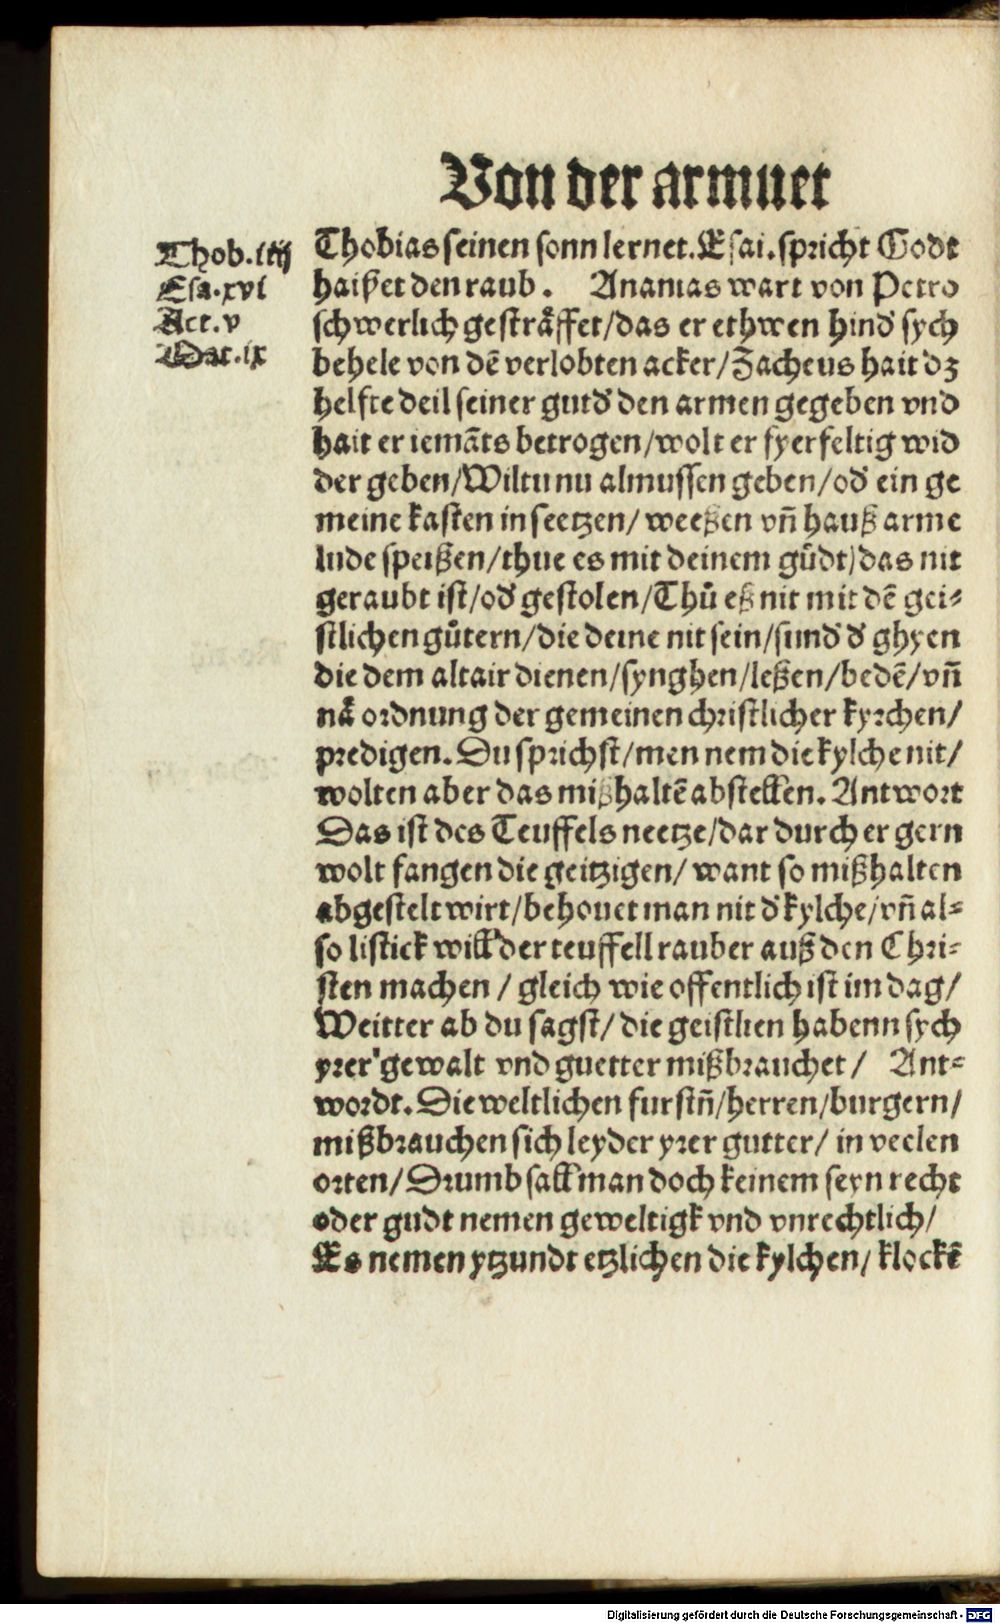 Von der armuet
Thob. iiij
Esa. xvi
Act. v
Mat. ix
Thobias seinen sonn lernet. Esai. spricht Godt
haißet den raub. Ananias wart von Petro
schwerlich gesträffet/das er ethwen hind̕ sych
behele von dē verlobten acker/Zacheus hait dz
helfte deil seiner gutd̕ den armen gegeben vnd
hait er iemāts betrogen/wolt er fyerfeltig wid
der geben/Wiltu nu almussen geben/od̕ ein ge
meine kasten in seetzen/weeßen vn̄ hauß arme
lude speißen/thue es mit deinem gůdt/das nit
geraubt ist/od̕ gestolen/Thů eß nit mit dē gei⸗
stlichen gůtern/die deine nit sein/sund̕ d̕ ghyen
die dem altair dienen/synghen/leßen/bedē/vn̄
nå ordnung der gemeinen christlicher kyrchen/
predigen. Du sprichst/men nem die kylche nit/
wolten aber das mißhaltē abstellen. Antwort
Das ist des Teuffels neetze/dar durch er gern
wolt fangen die geitzigen/want so mißhalten
abgestelt wirt/behouet man nit d̕ kylche/vn̄ al⸗
so listick will der teuffell rauber auß den Chri⸗
sten machen/gleich wie offentlich ist im dag/
Weitter ab du sagst/die geistlien habenn sych
yrer gewalt vnd guetter mißbrauchet/ Ant⸗
wordt. Die weltlichen furstn̄/herren/burgern/
mißbrauchen sich leyder yrer gutter/in veelen
orten/Drumb sall man doch keinem seyn recht
oder gudt nemen geweltigk vnd vnrechtlich/
Es nemen ytzundt etzlichen die kylchen/klockē
Digitalisierung gefördert durch die Deutsche Forschungsgemeinschaft - DFG